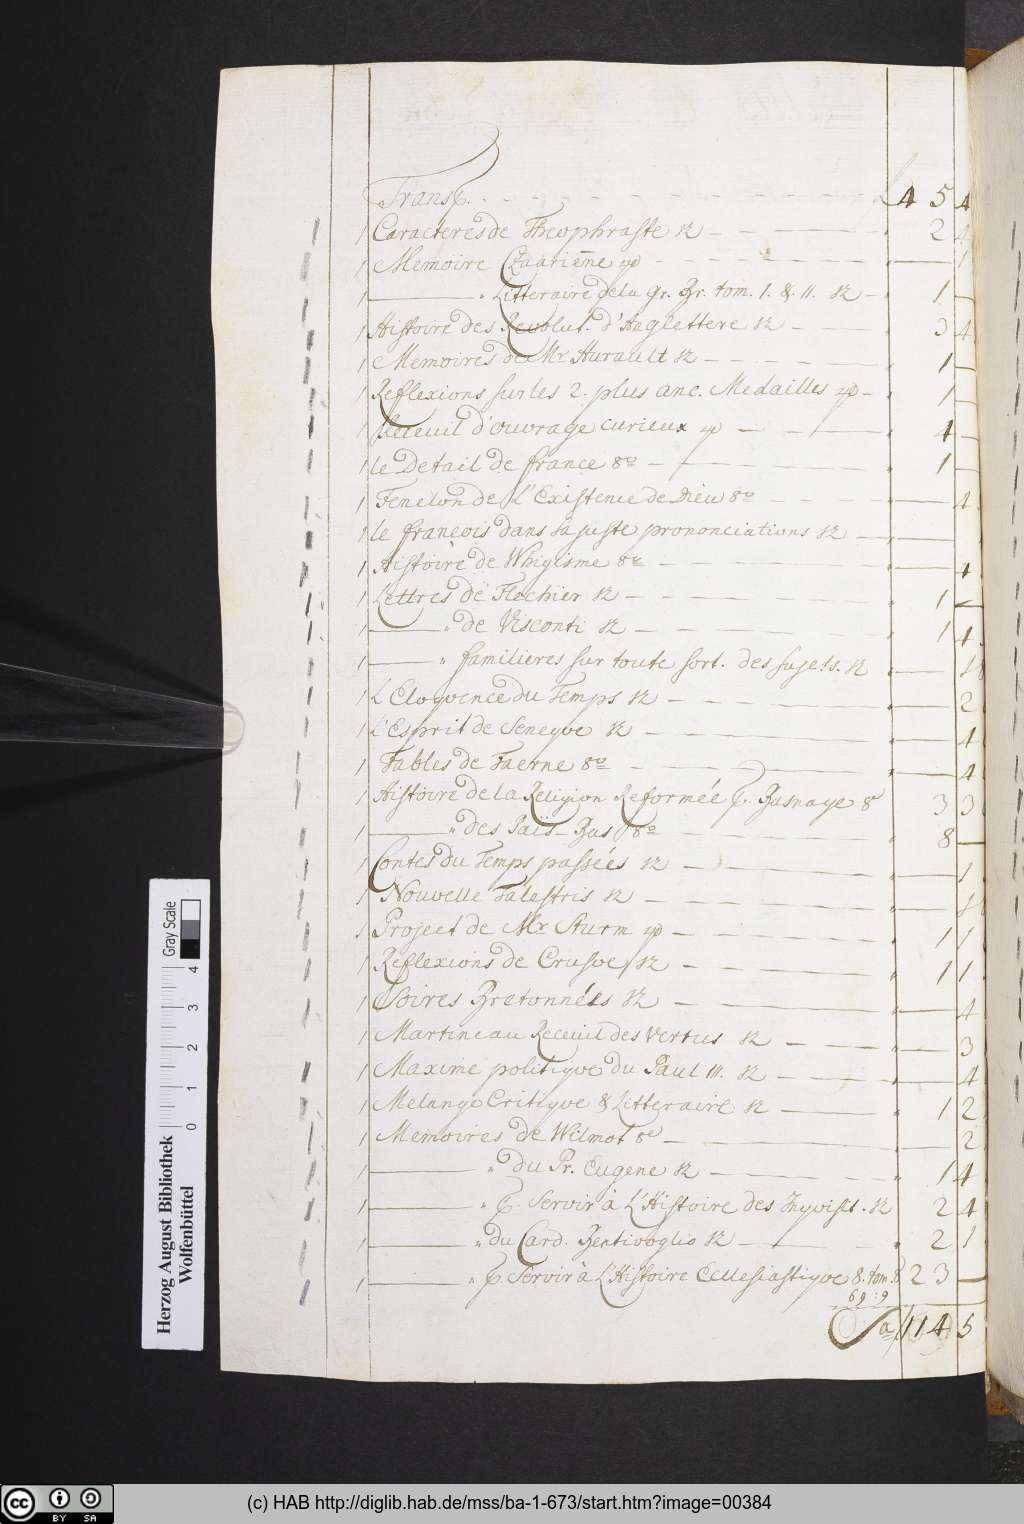 Transp. 45 4
1 Caracteres de Theophraste 12 2 4
1 Memoire Czarienne 1
1 " Litteraire dela gr. Br. tom. I. & II. 12 1 —
1 Histoire des Revolut. d'Anglettere 12 3 4
1 Memoires de Mr Hurault 12 1 —
1 Reflexions sur les 2. plus anc. Medailles 1 —
1 Receuil d'ouvrage curieux 4 —
1 le Detail de france 8vo 1 —
1 Fenelon de L'Existence de Dieu 8vo 4
1 le francois dans sa juste prononciations 12
1 Histoire de Whigisme 8vo 4
1 Lettres de Flechier 12 1 —
1 " de Visconti 12 1 4
1 " familieres sur toute sort. des sujets. 12
1 L'Eloqvence du Temps 12 2
1 L'Esprit de Seneqve 12 4
1 Fables de Faerne 8vo 4
1 Histoire de la Religion Reformée p. Basnage 8 3 3
1 " des Païs-Bas 8vo 8 —
1 Contes du Temps passées 12 1
1 Nouvelle Talestris 12
1 Project de Mr Sturm 1 1
1 Reflexions de 12 1 1
1 Soires Bretonnées 12 4
1 Martineau Receuil des Vertus 12 3
1 Maxime politiqve du Paul III. 12 4
1 Melange Critiqve & Litteraire 12 1 2
1 Memoires de Wilmot 8vo 2
1 " du Pr. Eugene 12 1 4
1 " p. Servir à L'Histoire des 12 2 4
1 " du Card. Bentivoglio 12 2 1
1 " p Servir à L'Histoire Ecclesiastiqve 8. tom. 8 23 —
69:9
Sa 114 5
Herzog August Bibliothek
Wolfenbüttel
0 1 2 3 4 Gray Scale
CC BY SA
(c) HAB http://diglib.hab.de/mss/ba-1-673/start.htm?image=00384